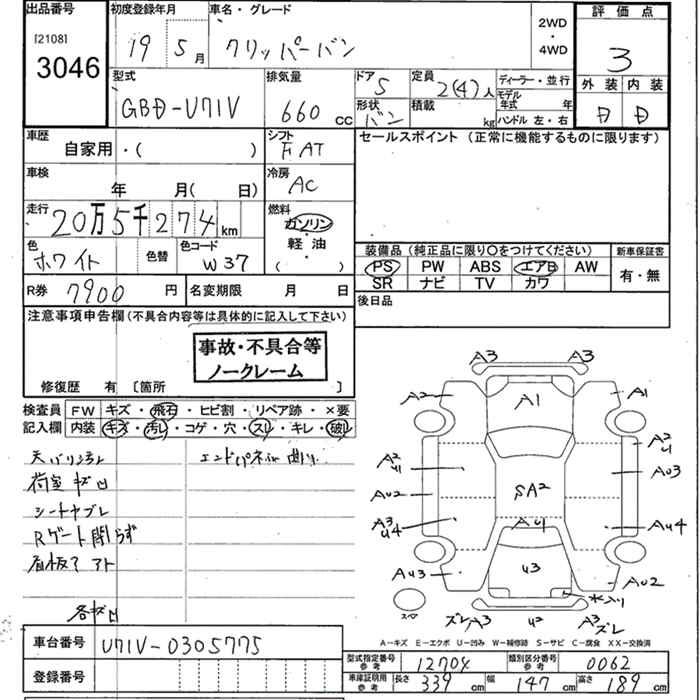 出品番号 初度登録年月 車名・グレード 2WD・4WD 評価点
[2108] 3046 19年 5月 クリッパーバン 3
外装 内装
型式 排気量 ドア 5 定員 2(4)人 ディーラー・並行
GBD-U71V 660cc 形状 バン 積載 kg モデル年式 年 ハンドル 左・右 D
車歴 シフト セールスポイント (正常に機能するものに限ります)
自家用・( ) F AT
車検 冷房
年 月( 日) AC
走行 燃料
20万5千274km ガソリン
軽油
( )
色 色替 色コード 装備品 (純正品に限り○をつけてください) 新車保証書
ホワイト W37 PS PW ABS エアB AW 有・無
SR ナビ TV カワ
R券 7900円 名変期限 月 日 後日品
注意事項申告欄(不具合内容等は具体的に記入して下さい)
事故・不具合等
ノークレーム
修復歴 有 [箇所 ]
検査員 FW キズ・飛石・ヒビ割・リペア跡・×要
記入欄 内装 キズ・汚レ・コゲ・穴・スレ・キレ・破レ
エンドパネル曲り
荷室 キズ凹
シートヤブレ
Rゲート開らず
看板? アト
各キズ凹
A3 A3
A2 A1 A1
A2 U1 A2 U1
AU2 SA2 AU3
A3 U4 AU1 AU4
AU3 U3 AU2
スペ ズレ A3 U2 A3 ズレ
A－キズ E－エクボ U－凹み W－補修跡 S－サビ C－腐食 XX－交換済
車台番号 U71V-0305775
型式指定番号 参考 12704 類別区分番号 参考 0062
登録番号 車庫証明用 参考 長さ 339cm 幅 147cm 高さ 189cm